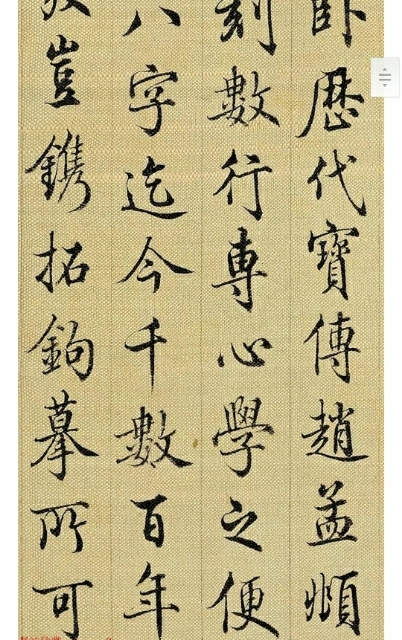 卧歷代寶傳趙孟頫
刻數行專心學之便
八字迄今千數百年
豈鐫拓鉤摹所可